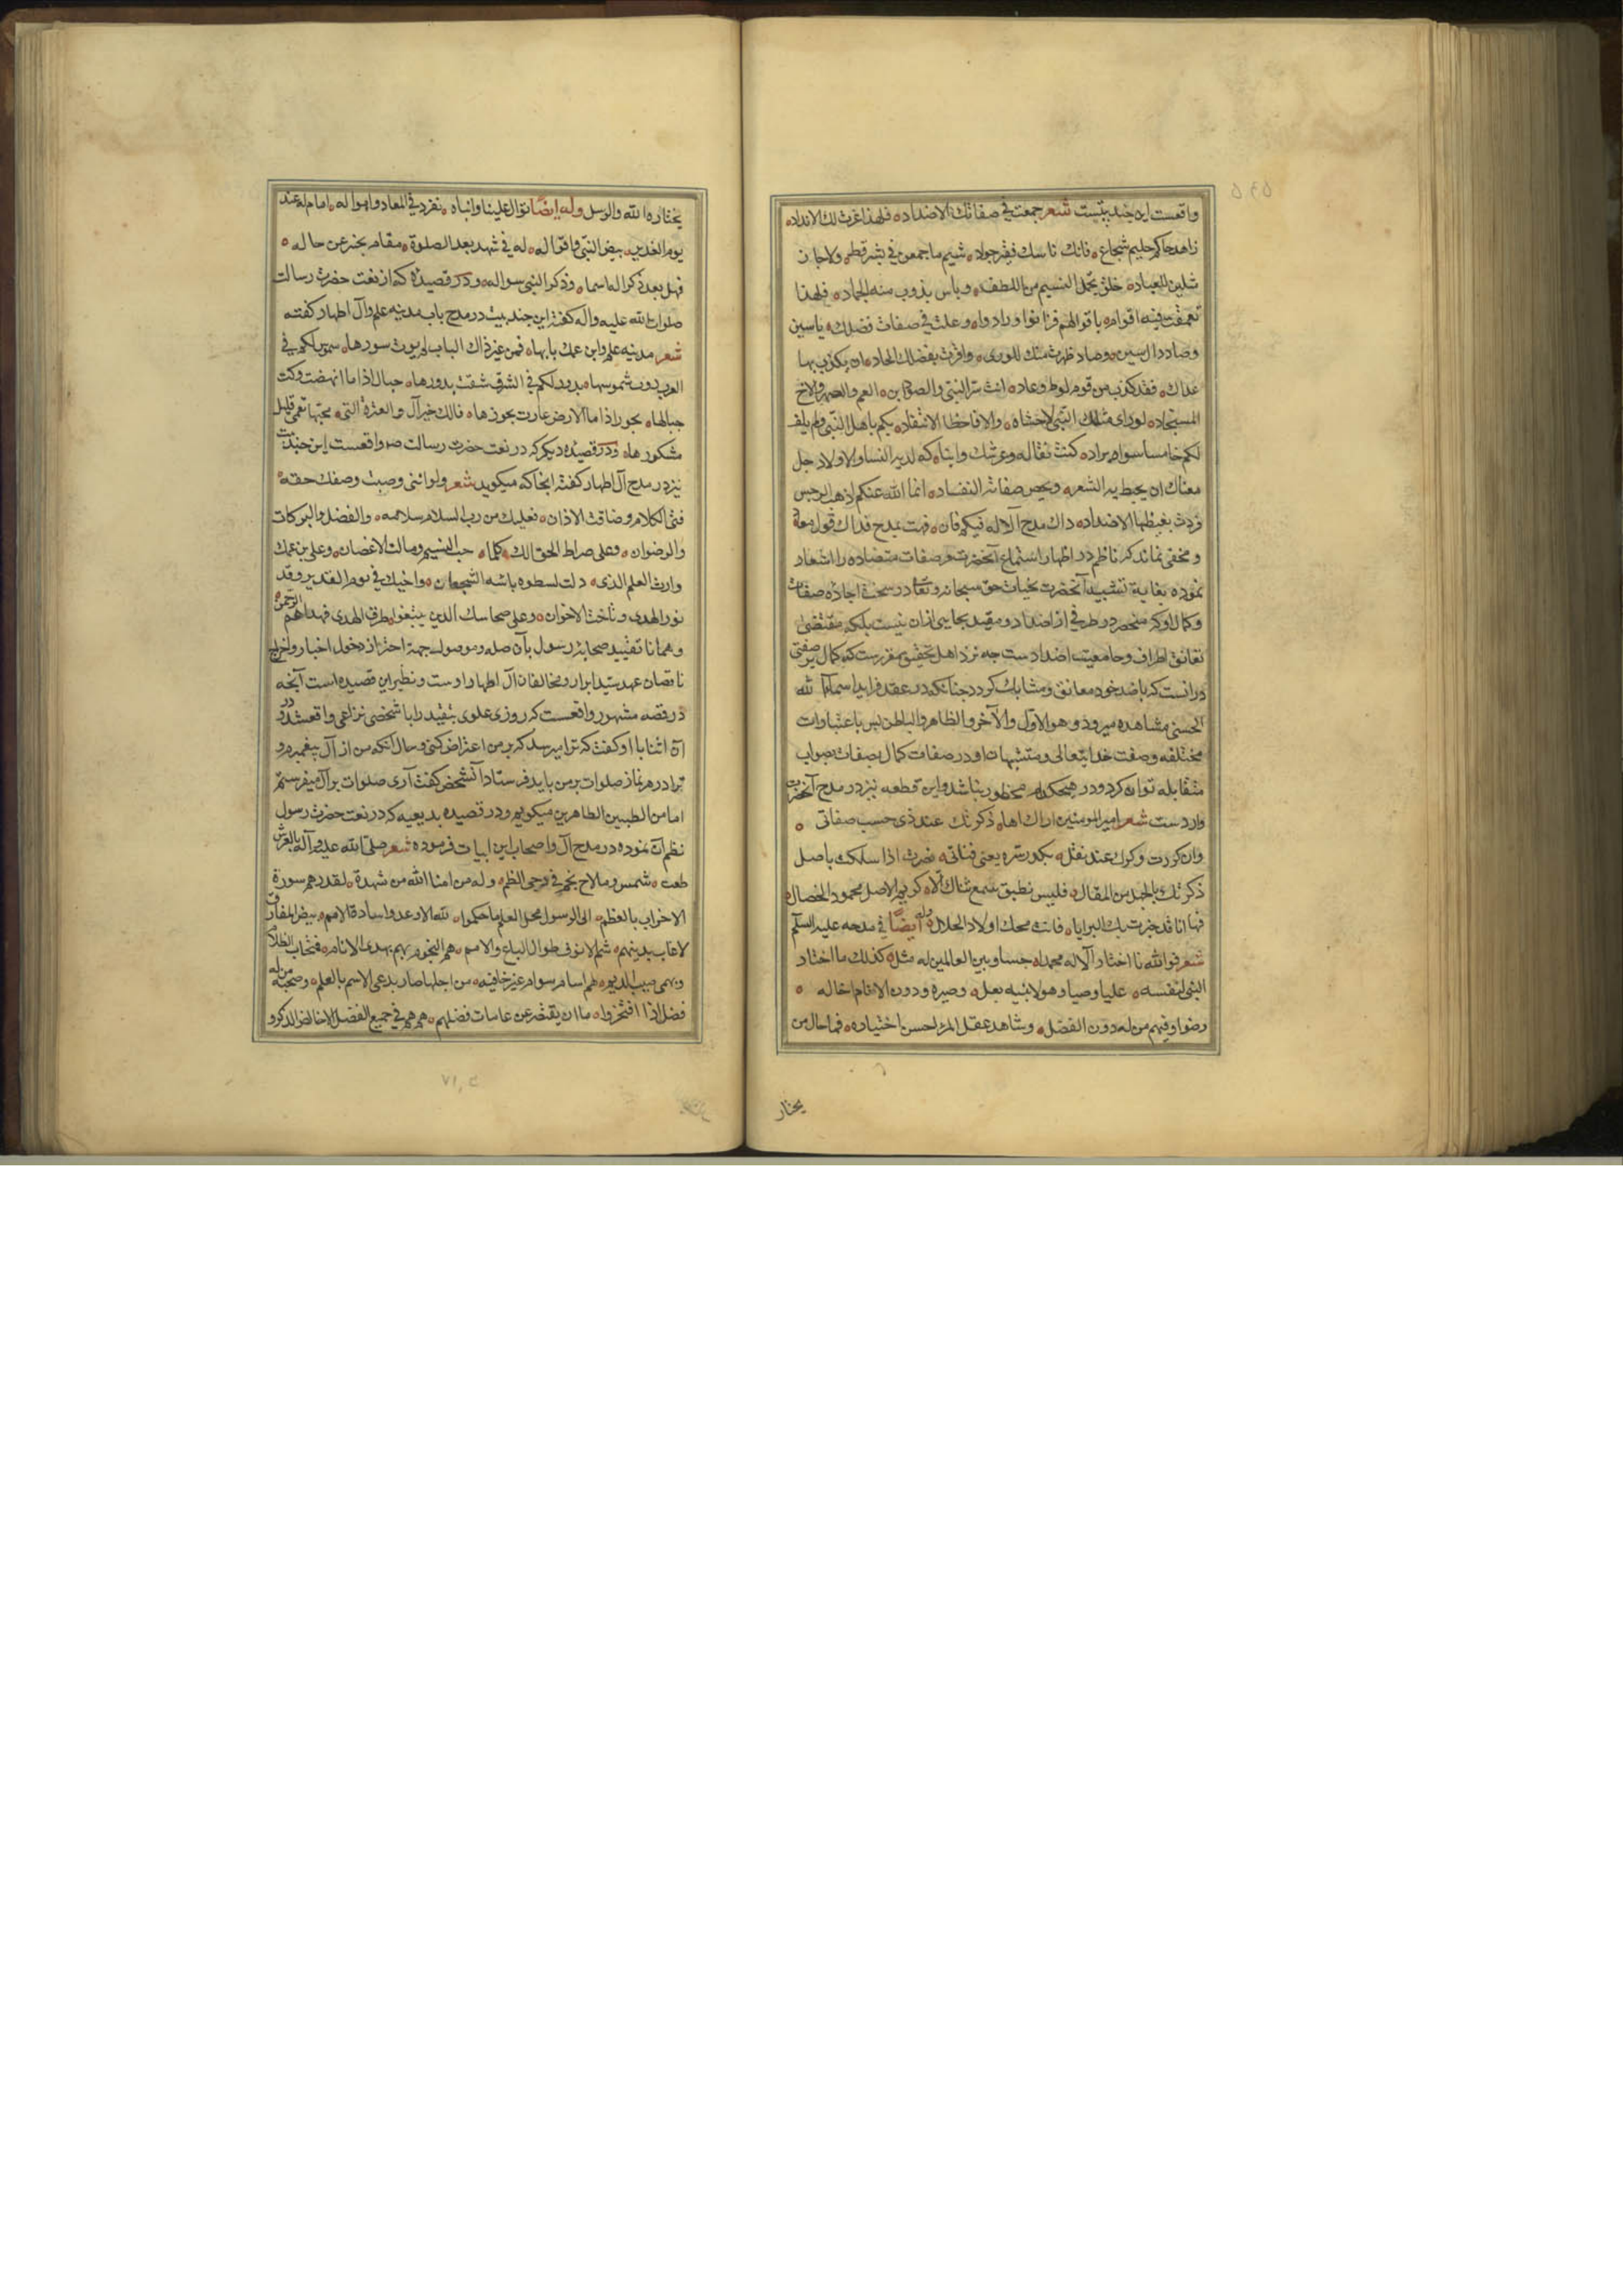 واقعست این چند بیتست شعر جمعت في صفاتك الاضداد فلهذا عزت لك الانداد
زاهد حاکم حلیم شجاع فاتك ناسك فقير جواد شيم ما جمعن في بشر قط ولا حاز
مثلهن العباد خلق يخجل النسيم من اللطف وباس يذوب منه الجماد فلهذا
تعمقت فيه اقوام باقوالهم فزانوا وزادوا وغلت في صفات فضلك ياسين
وصاد وال سين وصاد ظهرت منك للورى واقرت بفضلك الحاد ان يكذب بها
عداك فقد كذب من قوم لوط وعاد انت سر النبي والصنو وابن العم والصهر والاخ
المستجاد لو راى مثلك النبي لاخاه والا فاخطا الانتقاد بكم باهل النبي ولم يلف
لكم خامسا سواه يزاد كنت نفسا له وعرسك وابناك لديه النسا والاولاد جل
معناك ان يحيط به الشعر ويحصي صفاته النقاد انما الله عنكم اذهب الرجس
فردت بغيظها الاضداد ذاك مدح الاله فيكم فان فهت بمدح فذاك قول معاد
و مخفی نماند که ناظم در اظهار استماع آنحضرت مر صفات متضاده را اشعار
نموده بغایة تشبیه آنحضرت بجناب حق سبحانه و تعالی در سخن اجاده صفات
وکمال او که منحصر در طرفی از اضداد و مقید بجایی ازان نیست بلکه مقتضی
تعانق اطراف و جامعیت اضدادست چه نزد اهل تحقیق مقررست که کمال هر صفتی
درانست که باضد خود معانق و مشابك کردد چنانکه در عقد فراید اسماء الله
الحسنی مشاهده میرود وهو الاول والآخر والظاهر والباطن پس باعتبارات
مختلفه وصفت خدایتعالی و متشبهات او در صفات کمال بصفات بصواب
متقابله توان کرد و در هیچکدام محظور نباشد و این قطعه نیز در مدح آنحضرت
واردست شعر امیر المومنین اراك اما ذكرتك عند ذي حسب صفاتي
وان كررت ذكرك عند نغل تكدر ستره يعني فناتي فصرت اذا سلكت باصل
ذكرتك بالجميل من المقال فليس يطيق سمع ثناك الا كريم الاصل محمود الخصال
فها انا قد خبرت بك البرايا فانت محك اولاد الحلال وله ايضًا في مدحه عليه السلم
شعر فوالله ما اختار الاله محمدا حبيبا وبين العالمين له مثل كذلك ما اختار
النبي لنفسه عليا وصيا وهو لابنته بعل وصيره دون الانام اخا له
وصنوا وفيهم من له دون الفضل وشاهد عقل المرء حسن اختياره فما حال من
یختار
يختاره الله والرسل وله ايضًا توال علينا وابناه تفز في المعاد واهواله امام له عند
يوم الغدير بيض النبي واقواله له في تشهد بعد الصلوة مقام يخبر عن حاله
فهل بعد ذكر اله السما وذكر النبي سواله ودر قصیده که از نعت حضرت رسالت
صلوات الله علیه و آله کفته این چند بیت در مدح باب مدینه علم و آل اطهار کفته
شعر مدينه علم وابن عمك بابها فمن غير ذاك الباب لم يوت سورها شموس لكم في
الغرب ردت شموسها بدور لكم في الشرق شقت بدورها جبال اذا ما الهضب دكت
جبالها بحور اذا ما الارض غارت بحورها فالك خير آل والعترة التي محبتها نعمى قليل
شكورها ودر قصیده دیکر که در نعت حضرت رسالت ص واقعست این چند بیت
نیز در مدح آل اطهار کفته انجا که میکوید شعر ولو انني وفيت وصفك حقه
فني الكلام وضاقت الاذان فعليك من رب السلام سلامه والفضل والبركات
والرضوان وعلى صراط الحق آلك كلما هب النسيم ومالت الاغصان وعلى بن عمك
وارث العلم الذي ذلت لسطوة باسه الشجعان واخيك في يوم الغدير وقد بدا
نور الهدى وتآخت الاخوان وعلى صحابتك الذين يتبعوا طرق الهدى فهداهم الرحمن
و همانا تقیید صحابه رسول بآن صله و موصول جهة احتراز از دخول اخیار واخراج
ناقصان عهد سید ابرار و مخالفان آل اطهار اوست و نظیر این قصیده است آنچه
در قصه مشهور واقعست که روزی علوی بتقید را با شخصی نزاعی واقع شد و در
آن اثنا با او کفت که ترا میرسد که بر من اعتراض کنی و حال آنکه من از آل پیغمبرم و
ترا در هر نماز صلوات بر من باید فرستاد آنشخص کفت آری صلوات بر آل میفرستم
اما من الطيبين الطاهرین میکویم و در قصیده بدیعیه که در نعت حضرت رسول
نظم آن نموده در مدح آل و اصحاب این ابیات فرموده شعر صلى الله عليه وآله بالعرش
طلعت شمس وما لاح نجم في دجى الظلم وآله من امناء الله من شهدت لقدرهم سورة
الاحزاب بالعظم ال الرسول محل العلم ما حكموا لله الا وعدوا سادة الامم بيض المفارق
لا عاب يدنسهم شم الانوف طوال الباع والامم هم النجوم بهم يهدى الانام وينجاب الظلام
ويهمي صيب الديم لهم اسام سوام غير خافية من اجلها صار يدعى الاسم بالعلم وصحبه من له
فضل اذا افتخروا ما ان يقصر عن غايات فضلهم هم هم في جميع الفضل